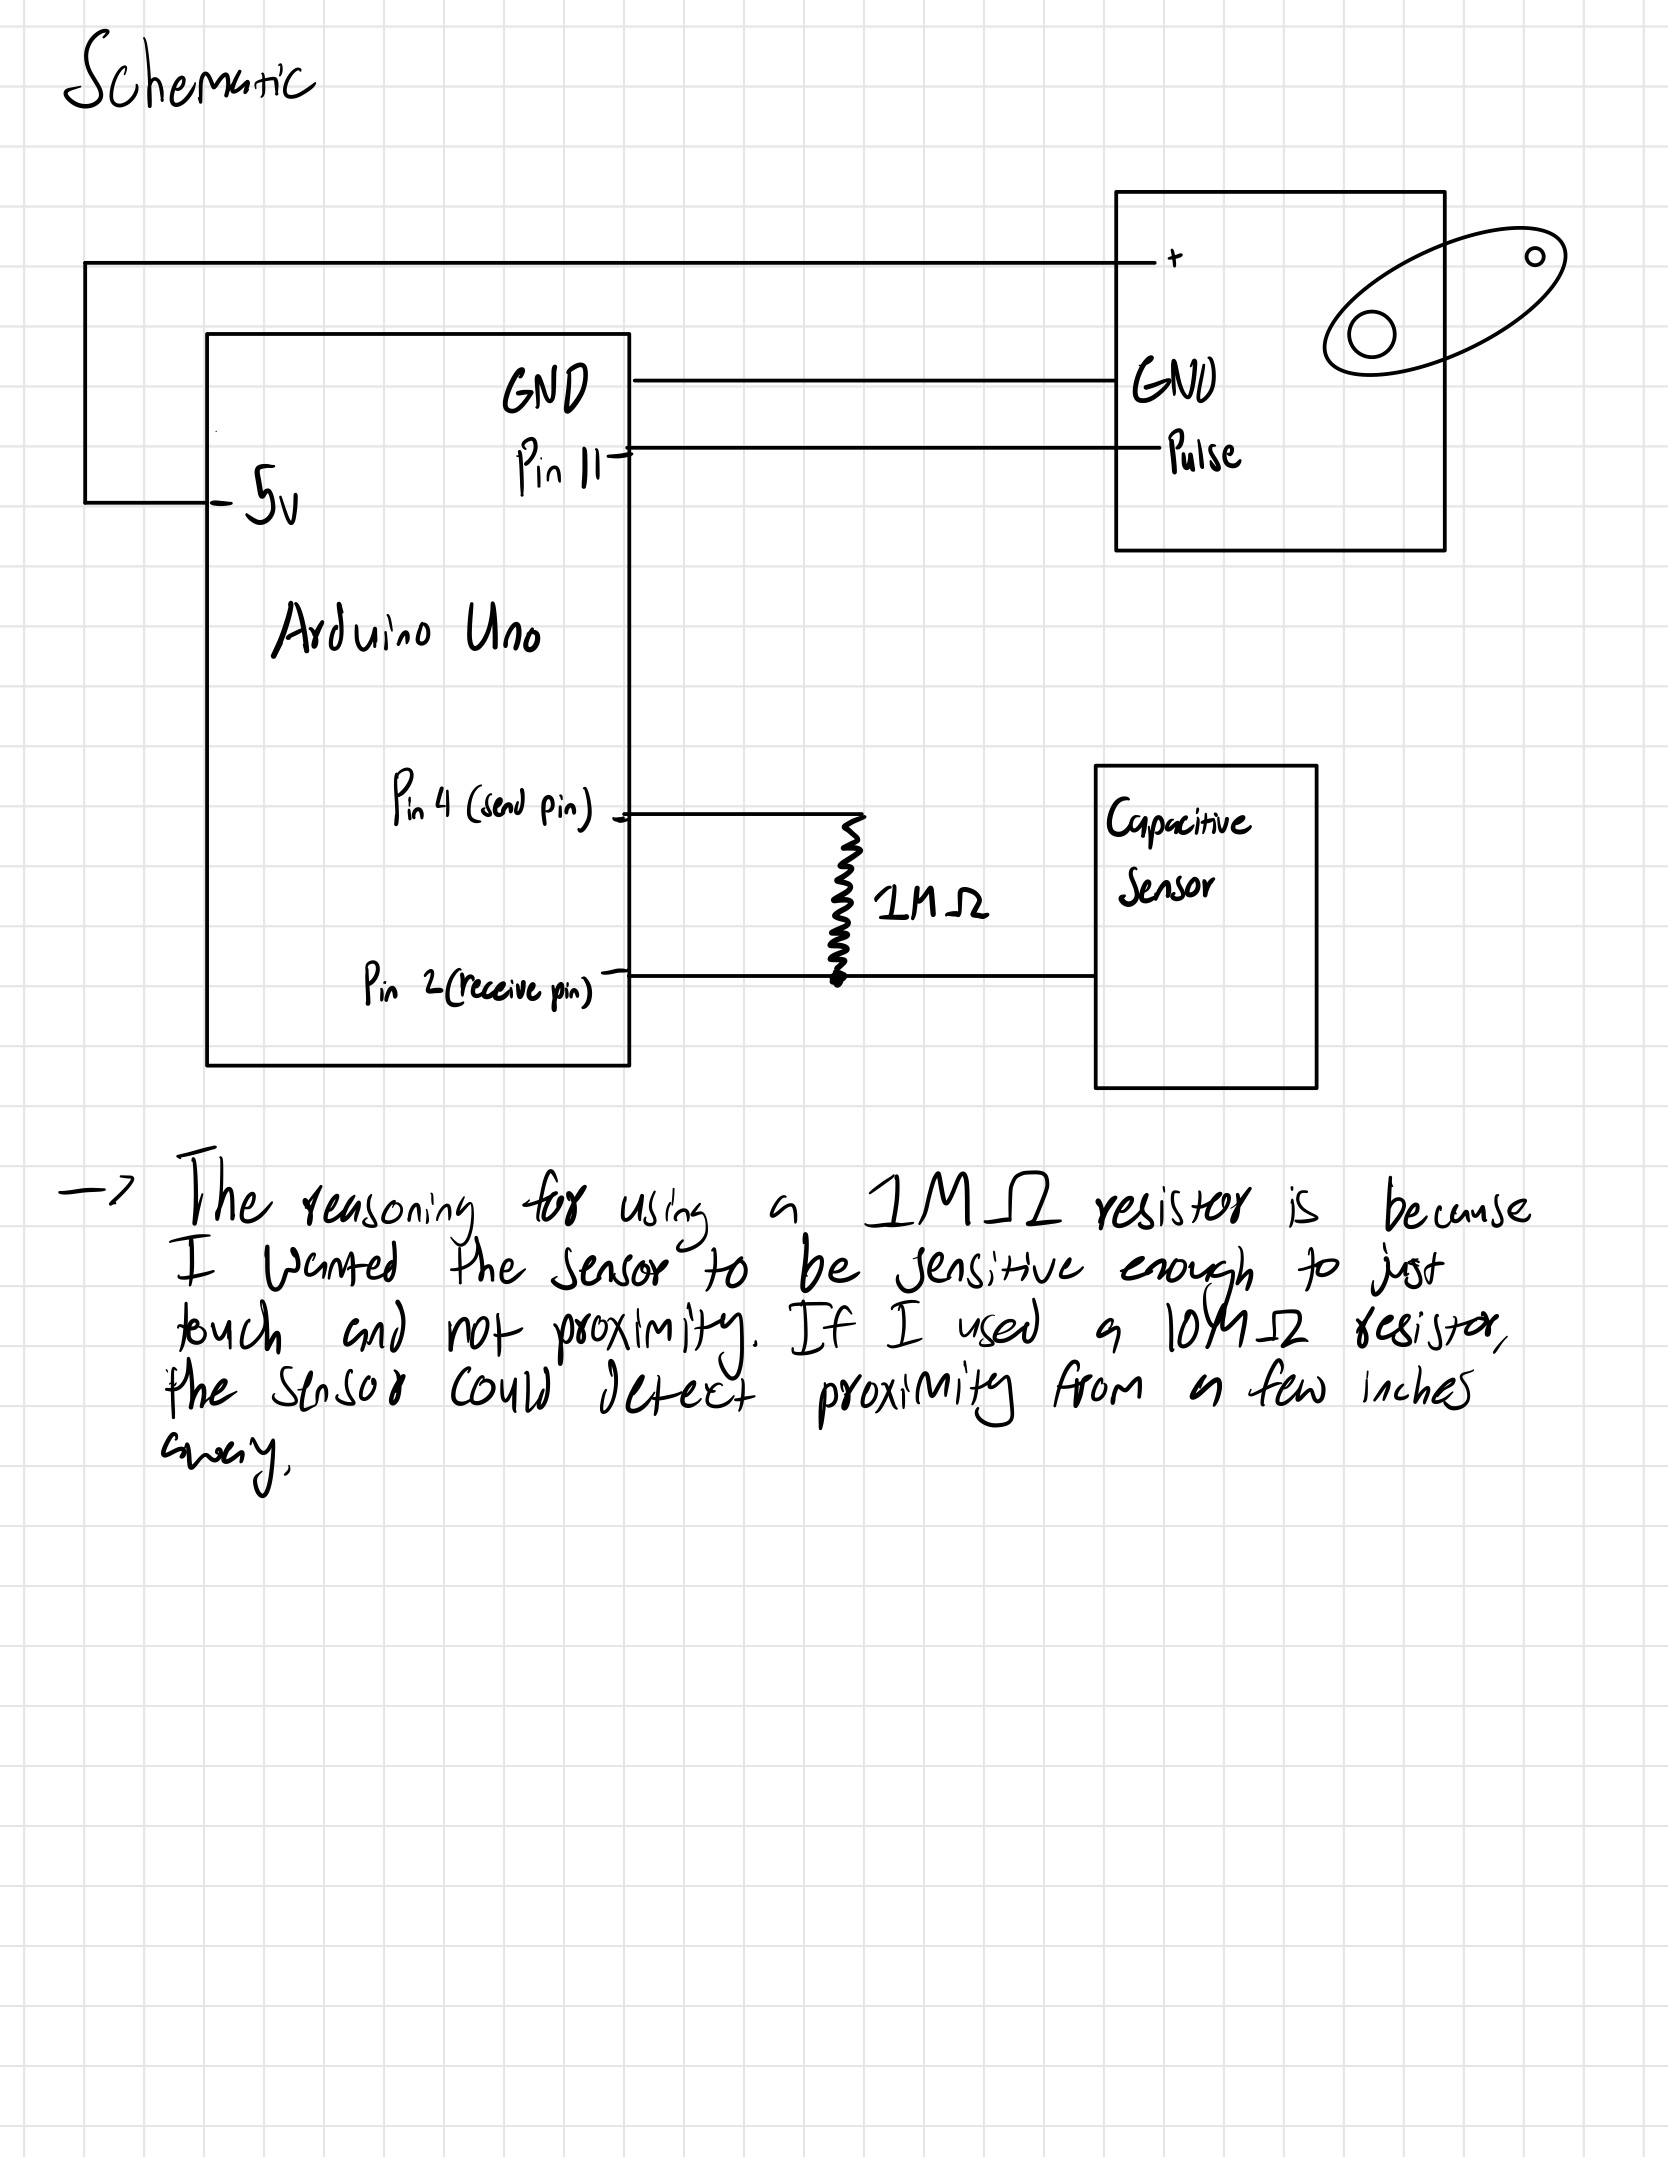 Schematic
+
GND
GND
Pin 11
Pulse
5v
Arduino Uno
Pin 4 (send pin)
Capacitive
Sensor
1MΩ
Pin 2 (receive pin)
→ The reasoning for using a 1MΩ resistor is because
I wanted the sensor to be sensitive enough to just
touch and not proximity. If I used a 10MΩ resistor,
the sensor could detect proximity from a few inches
away.